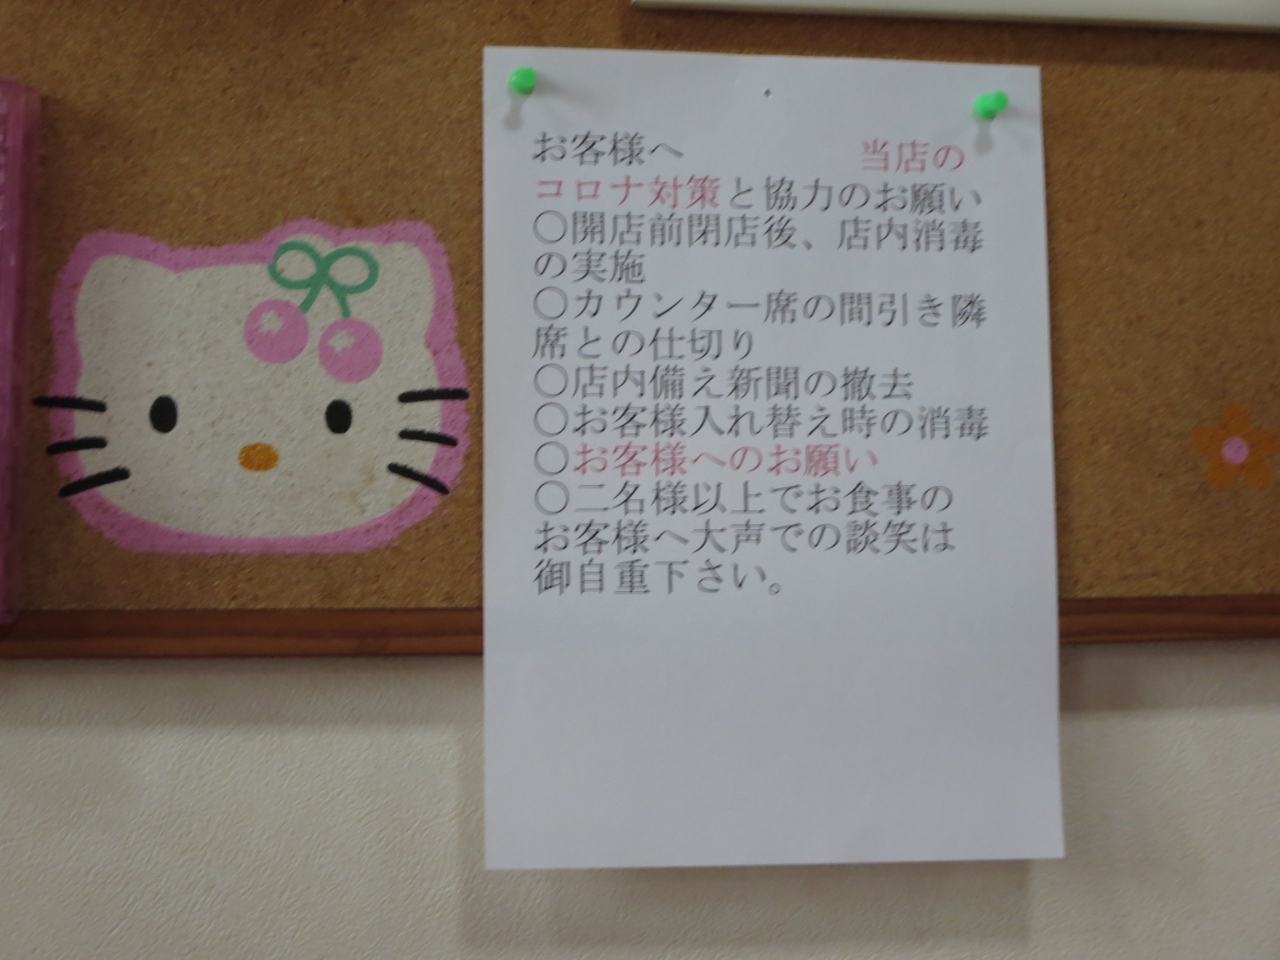 お客様へ 当店の
コロナ対策と協力のお願い
〇開店前閉店後、店内消毒
の実施
〇カウンター席の間引き隣
席との仕切り
〇店内備え新聞の撤去
〇お客様入れ替え時の消毒
〇お客様へのお願い
〇二名様以上でお食事の
お客様へ大声での談笑は
御自重下さい。